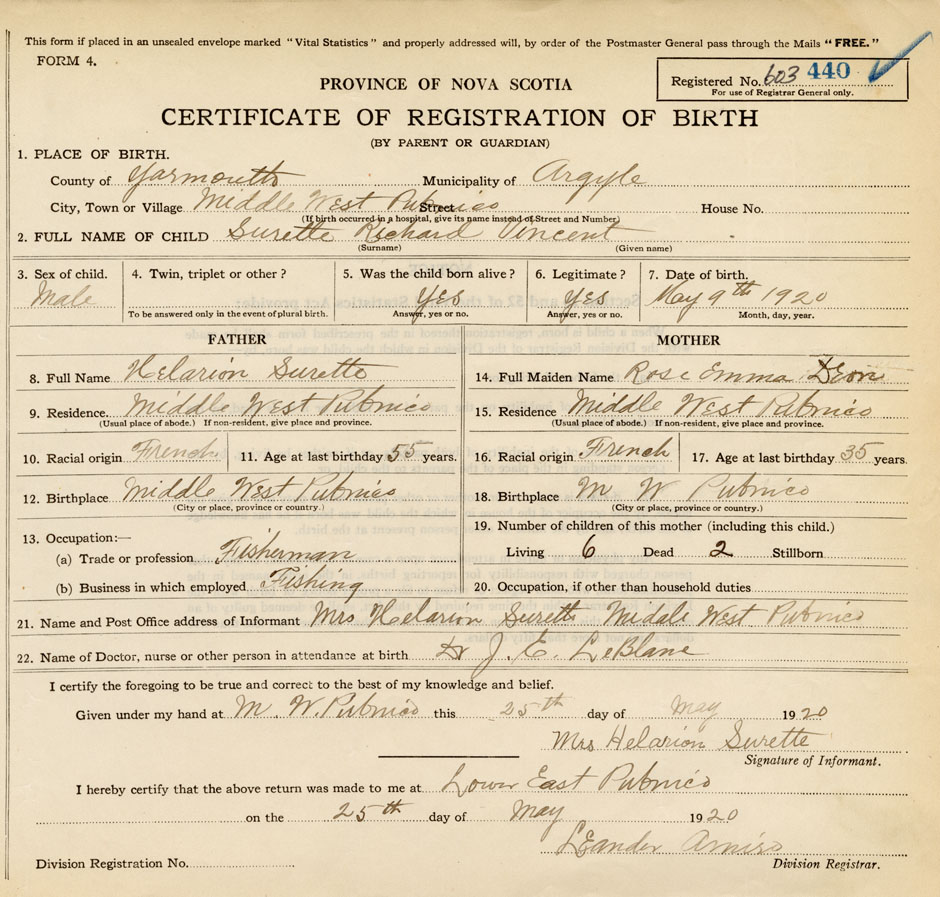 This form if placed in an unsealed envelope marked "Vital Statistics" and properly addressed will, by order of the Postmaster General pass through the Mails "FREE."
FORM 4.
Registered No. 603 440
For use of Registrar General only.
PROVINCE OF NOVA SCOTIA
CERTIFICATE OF REGISTRATION OF BIRTH
(BY PARENT OR GUARDIAN)
1. PLACE OF BIRTH.
County of Yarmouth Municipality of Argyle
City, Town or Village Middle West Pubnico Street House No.
(If birth occurred in a hospital, give its name instead of Street and Number)
2. FULL NAME OF CHILD Surette Richard Vincent
(Surname) (Given name)
3. Sex of child. 4. Twin, triplet or other? 5. Was the child born alive? 6. Legitimate? 7. Date of birth.
Male Yes Yes May 9th 1920
To be answered only in the event of plural birth. Answer, yes or no. Answer, yes or no. Month, day, year.
FATHER MOTHER
8. Full Name Helarion Surette 14. Full Maiden Name Rose Emma Deon
9. Residence. Middle West Pubnico 15. Residence Middle West Pubnico
(Usual place of abode.) If non-resident, give place and province. (Usual place of abode.) If non-resident, give place and province.
10. Racial origin French 11. Age at last birthday 55 years. 16. Racial origin French 17. Age at last birthday 35 years.
12. Birthplace Middle West Pubnico 18. Birthplace M W Pubnico
(City or place, province or country.) (City or place, province or country.)
13. Occupation:— 19. Number of children of this mother (including this child.)
(a) Trade or profession Fisherman Living 6 Dead 2 Stillborn
(b) Business in which employed Fishing 20. Occupation, if other than household duties
21. Name and Post Office address of Informant Mrs Helarion Surette Middle West Pubnico
22. Name of Doctor, nurse or other person in attendance at birth Dr J. E. LeBlanc
I certify the foregoing to be true and correct to the best of my knowledge and belief.
Given under my hand at M. W. Pubnico this 25th day of May 1920
Mrs Helarion Surette
Signature of Informant.
I hereby certify that the above return was made to me at Lower East Pubnico
on the 25th day of May 1920
Leander Amiro
Division Registration No. Division Registrar.